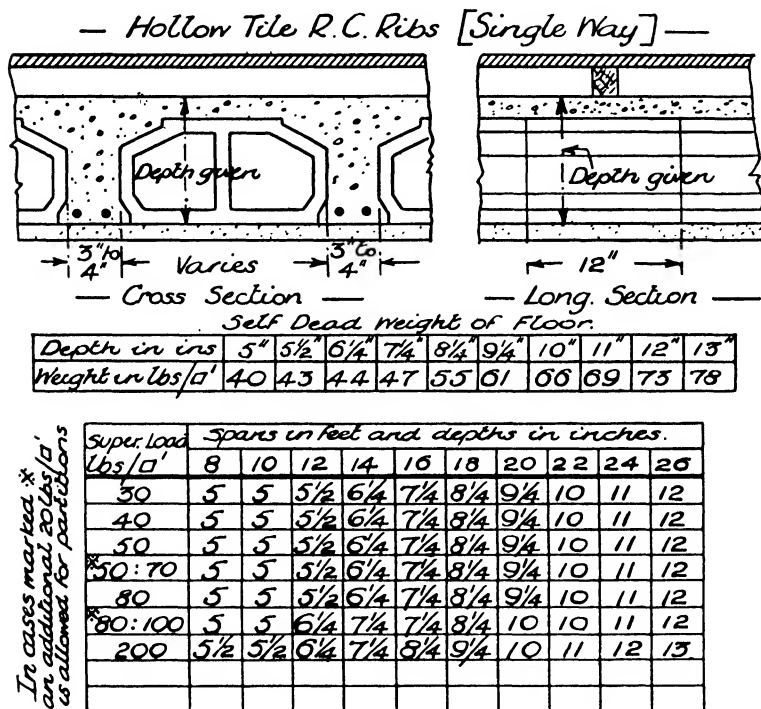 — Hollow Tile R.C. Ribs [Single Way] —
Depth given
Depth given
3" to 4"
Varies
3" to 4"
12"
— Cross Section —
— Long. Section —
Self Dead Weight of Floor.
Depth in ins 5" 5½" 6¼" 7¼" 8¼" 9¼" 10" 11" 12" 13"
Weight in lbs/□' 40 43 44 47 55 61 66 69 73 78
In cases marked *
an additional 20 lbs/□'
is allowed for partitions
Super. Load lbs/□'
Spans in feet and depths in inches.
8 10 12 14 16 18 20 22 24 26
30 5 5 5½ 6¼ 7¼ 8¼ 9¼ 10 11 12
40 5 5 5½ 6¼ 7¼ 8¼ 9¼ 10 11 12
50 5 5 5½ 6¼ 7¼ 8¼ 9¼ 10 11 12
*50:70 5 5 5½ 6¼ 7¼ 8¼ 9¼ 10 11 12
80 5 5 5½ 6¼ 7¼ 8¼ 9¼ 10 11 12
*80:100 5 5 6¼ 7¼ 7¼ 8¼ 10 10 11 12
200 5½ 5½ 6¼ 7¼ 8¼ 9¼ 10 11 12 13